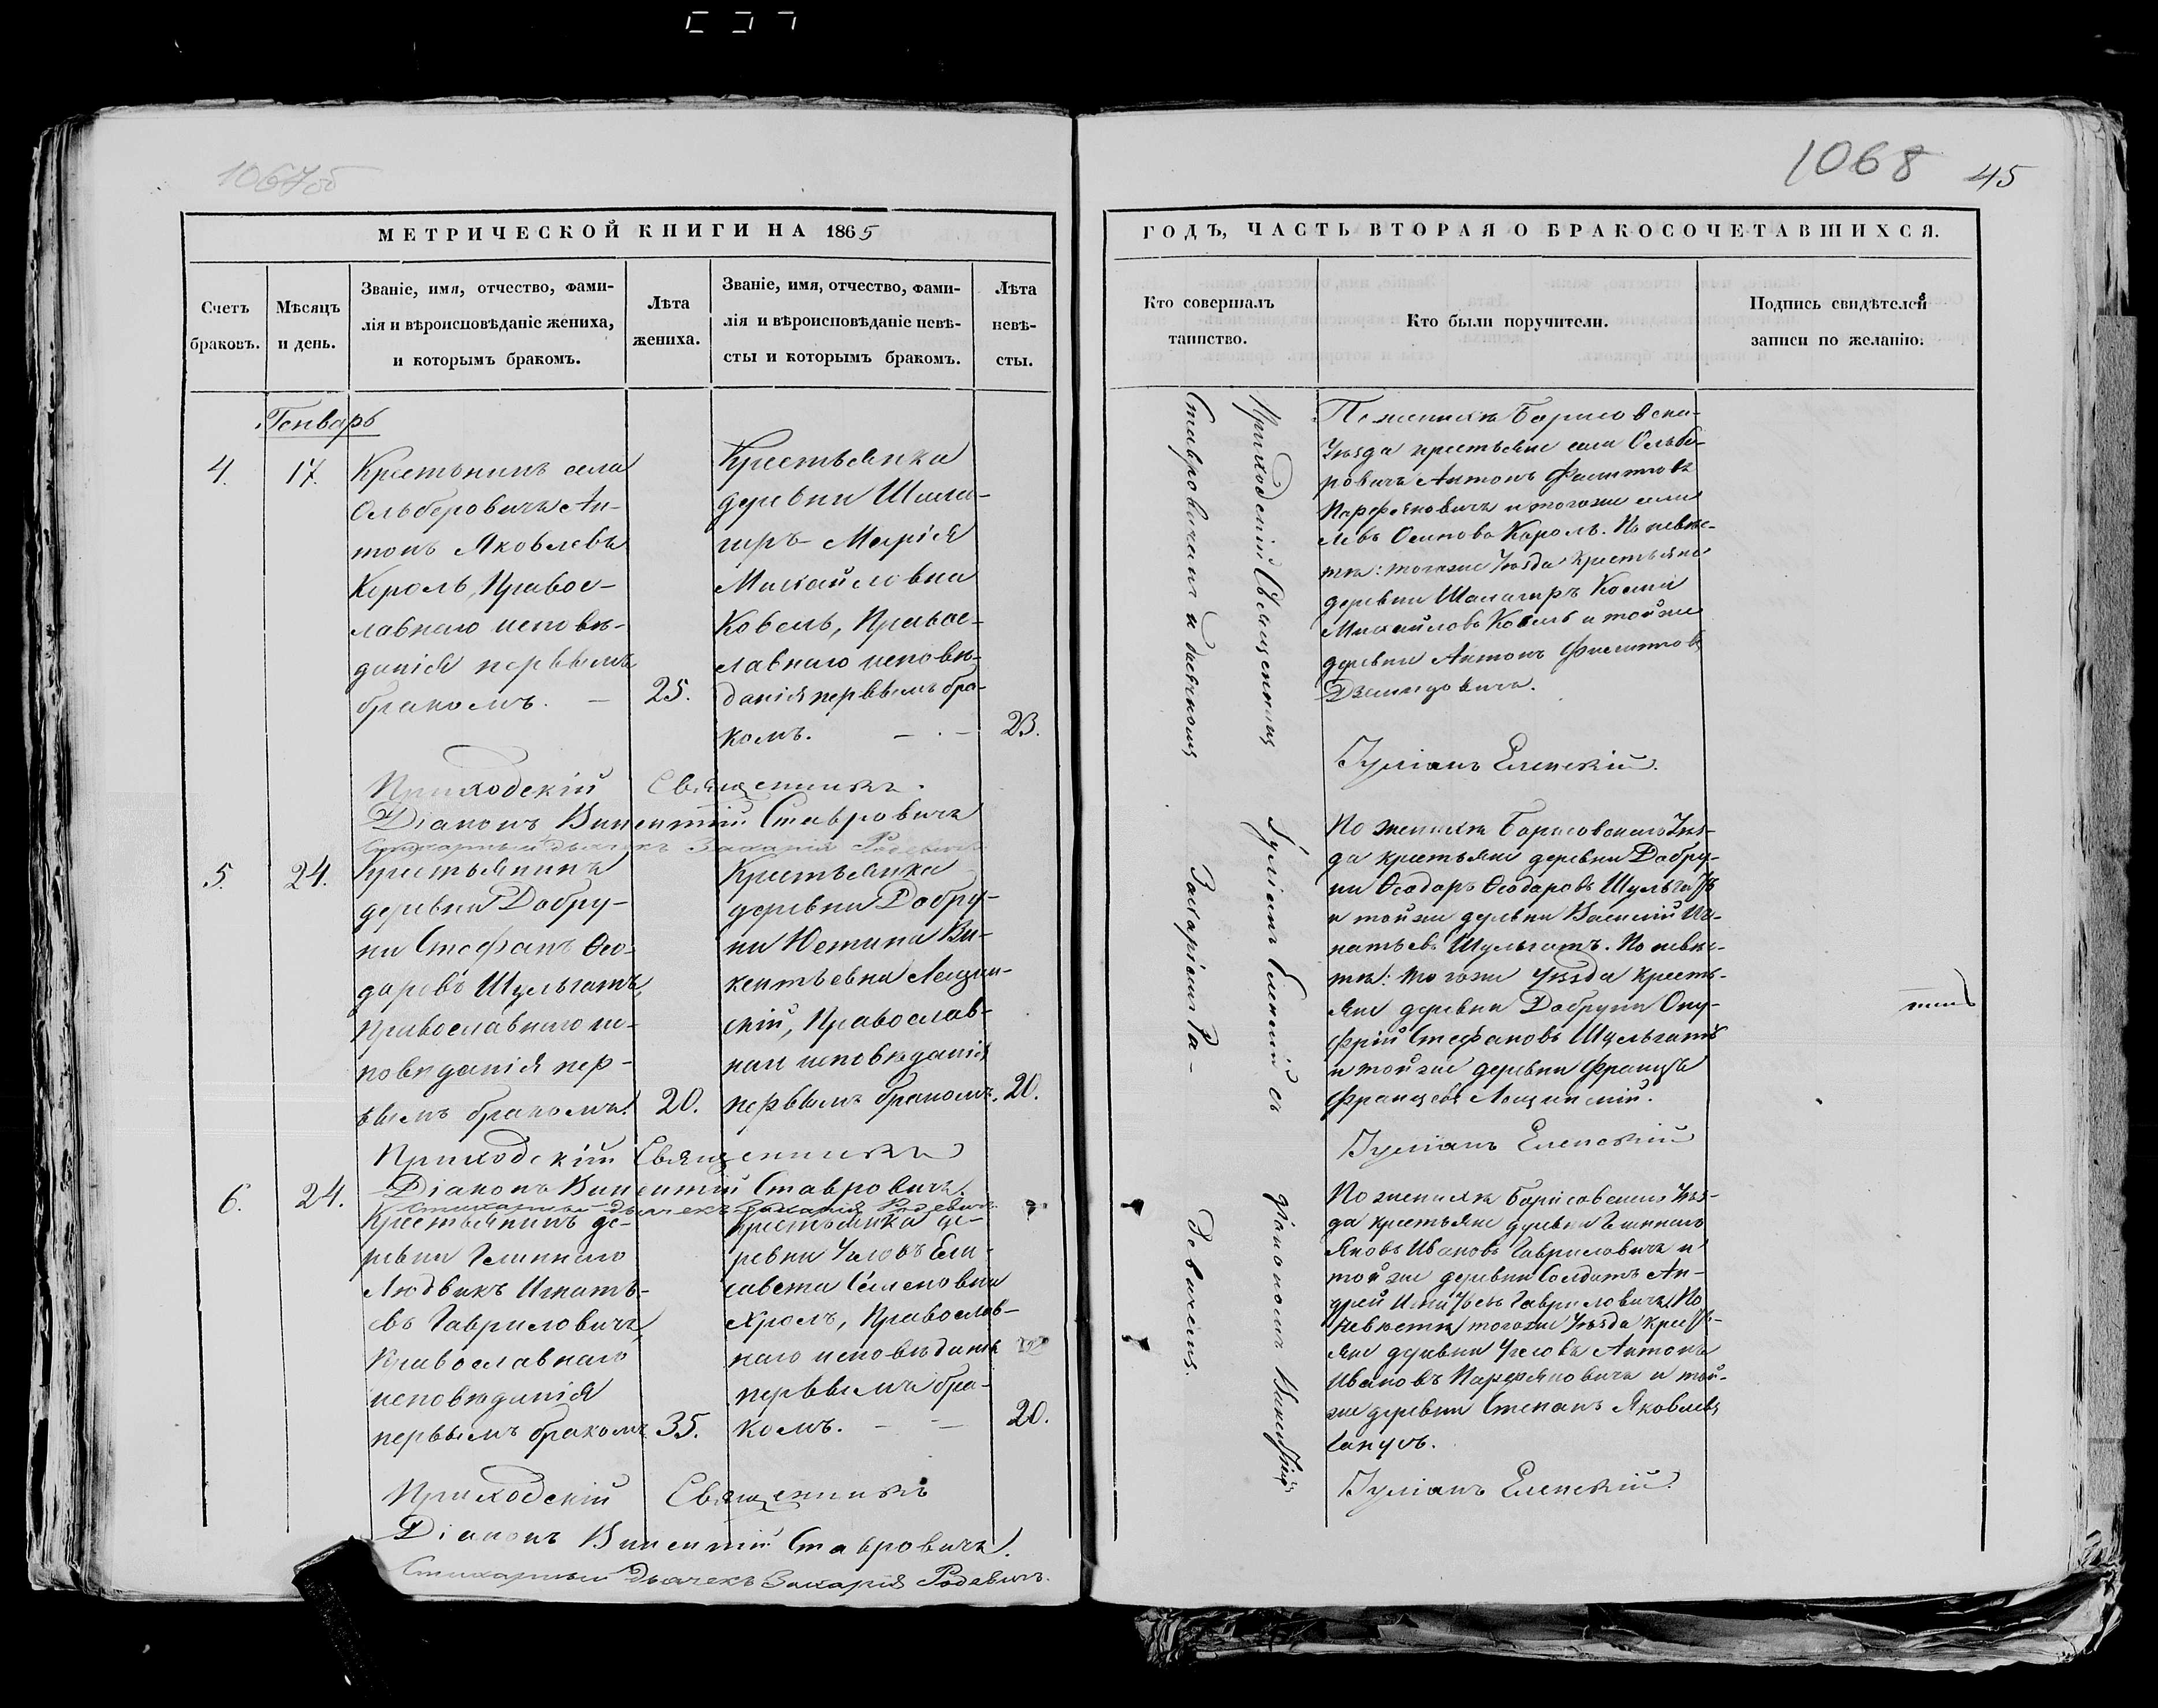 1067об
МЕТРИЧЕСКОЙ КНИГИ НА 1865
Счетъ браковъ.
Мѣсяцъ и день.
Званіе, имя, отчество, фами-
лія и вѣроисповѣданіе жениха,
и которымъ бракомъ.
Лѣта жениха.
Званіе, имя, отчество, фами-
лія и вѣроисповѣданіе невѣ-
сты и которымъ бракомъ.
Лѣта невѣ-
сты.
Генварь
4.
17.
Крестьнинъ села
Ольберовичъ Ан-
тонъ Яковлевъ
Король, Правос-
лавнаго исповѣ-
данія первымъ
бракомъ. —
25.
Крестьянка
деревни Шила-
гиръ Марія
Михайловна
Ковель, Правос-
лавнаго исповѣ-
данія первымъ бра-
комъ. — . —
23.
Приходскій Священникъ.
Діаконъ Викентій Ставровичъ
Стихарный дьячекъ Захарія Радевичъ
5.
24.
Крестьянинъ
деревни Добру-
ни Стефанъ Ѳео-
доровъ Шульгатъ,
Православнаго ис-
повѣданія пер-
вымъ бракомъ.
20.
Крестьянка
деревни Добру-
ни Юстина Ви-
кентьевна Лещин-
скій, Православ-
наго исповѣданія
первымъ бракомъ.
20.
Приходскій Священникъ
Діаконъ Викентій Ставровичъ.
Стихарный дьячекъ Захарія Радевичъ
6.
24.
Крестьянинъ де-
ревни Глинного
Людвикъ Игнать-
евъ Гавриловичъ,
Православнаго
исповѣданія
первымъ бракомъ
35.
Крестьянка де-
ревни Угловъ Ели-
савета Семеновна
Хроль, Православ-
наго исповѣданія
первымъ бра-
комъ. — —
20.
Приходскій Священникъ
Діаконъ Викентій Ставровичъ.
Стихарный Дьячекъ Захарія Радевичъ.
1068
45
ГОДЪ, ЧАСТЬ ВТОРАЯ О БРАКОСОЧЕТАВШИХСЯ.
Кто совершалъ
таинство.
Кто были поручители.
Подпись свидѣтелей
записи по желанію.
Приходскій Священникъ Іуліанъ Еленскій съ діакономъ Викентіемъ
Ставровичемъ и дьячкомъ Захаріемъ Ра-
девичемъ.
По женихѣ Борисовска-
Уѣзда крестьяне села Ольбе-
ровичъ Антонъ Филиповъ
Парфяновичъ и тогоже села
Левъ Осиповъ Король. По невѣс-
тѣ: тогоже Уѣзда крестьяне
деревни Шалагиръ Косма
Михайловъ Ковель и тойже
деревни Антонъ Филиповъ
Демидовичъ.
Іуліанъ Еленскій.
По женихѣ Борисовскаго Уѣз-
да крестьяне деревни Добру-
ни Ѳеодоръ Ѳеодоровъ Шульгатъ
и тойже деревни Василій Иг-
натьевъ Шульгатъ. По невѣс-
тѣ: тогоже Уѣзда кресть-
яне деревни Добруни Ону-
фрій Стефановъ Шульгатъ
и тойже деревни Францъ
Францевъ Лещинскій.
Іуліанъ Еленскій
По женихѣ Борисовскаго Уѣз-
да крестьяне деревни Глинного
Яковъ Ивановъ Гавриловичъ и
той же деревни Солдатъ Ан-
дрей Игнатьевъ Гавриловичъ. По
невѣстѣ тогоже Уѣзда кресть-
яне деревни Угловъ Антонъ
Ивановъ Парфяновичъ и той-
же деревни Степанъ Яковлевъ
Ганусъ.
Іуліанъ Еленскій.